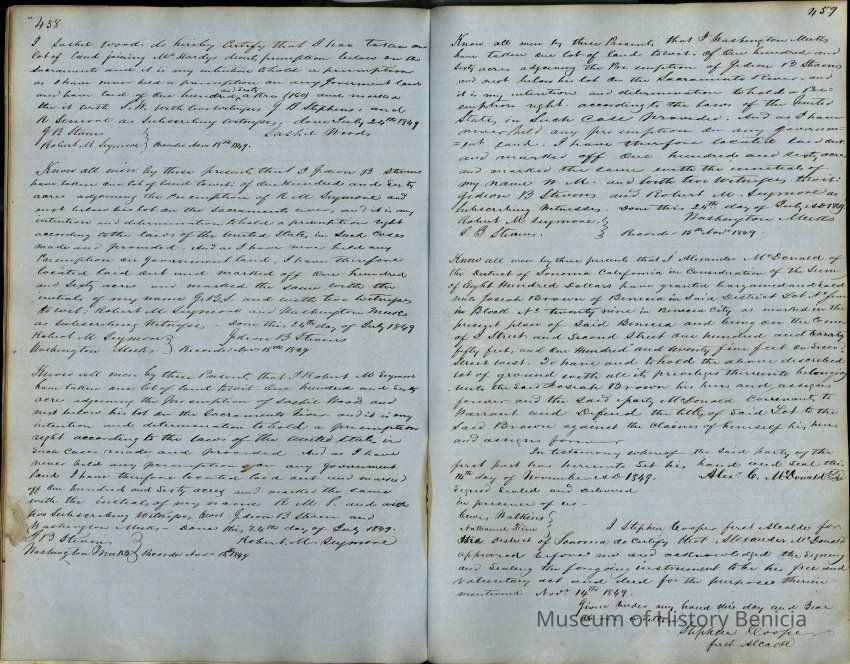 458
I Lashil Woods do hereby Certify that I has taken on
lot of land joining Mc Hardys decut, preemption below on the
Sacramento and it is my intention to hold a preemption
as I have never held a preemption on any Government land
and have laid of One hundred and Sixty acres (160) and marked
the it with S.W. with two witnesses J B Stephens, and
R Semore as Subscribing witnesses, done July 24th 1849
J B Stevens } Lashil Woods
Robert M Seymore } Recorded Nov 15th 1849.
Know all men by these presents, that I Jidson B Stevens
have taken one lot of land towit: of One Hundred and Sixty
acres adjoining the Preemption of R. M. Seymore and
next below his lot on the Sacramento river, and it is my
intention & determination to hold a preemption right
according to the laws of the United States, in Such Cases
made and provided. And as I have never held any
Preemption on Government land, I have therefore
located laid out and marked off One hundred
and Sixty acres and marked the Same with the
initials of my name J.B.S. and with two witnesses
to wit: Robert M. Seymore and Washington Meeks
as Subscribing Witnesses. Done this 24th day of July 1849
Robert M. Seymore } Jidson B Stevens
Washington Meeks. } Recorded Nov 15th 1849
Know all men by these Presents, that I Robert M. Seymore
have taken one lot of land towit One hundred and Sixty
acres adjoining the Preemption of Lashil Wood and
next below his lot on the Sacramento River and it is my
intention and determination to hold a preemption
right according to the laws of the United State in
Such Cases made and provided And as I have
never held any preemption on any Government
land I have therefore located laid out and marked
off One hundred and Sixty acres and marked the same
with the initials of my name R M S and with
two Subscribing Witnesses, towit Jidson B Stevens and
Washington Meeks - Done this 24th day of July 1849.
J B Stevens } Robert. M. Seymore
Washington Meeks } Recorded Nov. 15th 1849
459
Know all men by these Presents, that I Washington Meeks
have taken one lot of land towit: of One hundred and
Sixty acres adjoining the Pre emption of Jidson B Stevens
and next below his lot on the Sacramento River and
it is my intention and determination to hold a Pre-
emption right according to the laws of the United
States, in Such Case Provided. And as I have
never held any preemption on any governm-
ent land. I have therefore located laid out
and marked off One hundred and Sixty acres
and marked the same with the initials of
my name W. M. and with two Witnesses, towit:
Jidson B Stevens and Robert M. Seymore as
Subscribing Witnesses. Done this 24th day of July AD 1849
Robert M. Seymore } Washington Meeks
J B Stevens. } Recorded 15th Nov. 1849.
Know all men by these presents that I Alexander McDonald of
the District of Sonoma California in Consideration of the Sum
of Eight Hundred Dollars have granted bargained and Sold
unto Josiah Brown of Benicia in Said District Lot No four
in Block No twenty nine in Benicia City as marked on the
present plan of Said Benicia and being on the Corner
of I Street and Second Street One hundred and
fifty feet, and One Hundred and twenty five feet on Second
Street to have and to hold the above described
lot of ground with all it privileges thereunto belonging
unto the Said Josiah Brown his heirs and assigns
forever and the Said party McDonald Covenants, to
Warrant and Defend the title of Said Lot to the
Said Brown against the Claims of himself his heirs
and assigns forever
In testimony whereof the Said party of the
first part has hereunto Set his hand and Seal this
14th day of November AD 1849. Alexr C. McDonald
Signed Sealed and delivered
in presence of us
I Stephen Cooper first Alcalde for
the District of Sonoma do Certify that Alexander McDonald
appeared before me and acknowledged the Signing
and Sealing the foregoing instrument to be his free and
voluntary act and deed for the purposes therein
mentioned Nov. 14th 1849.
Given Under my hand this day and Year
Stephen Cooper
first Alcalde
Museum of History Benicia